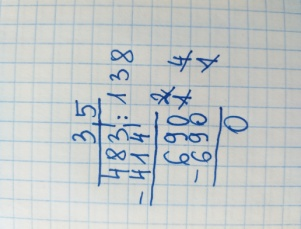 35
483:138
-414
690
-690
0